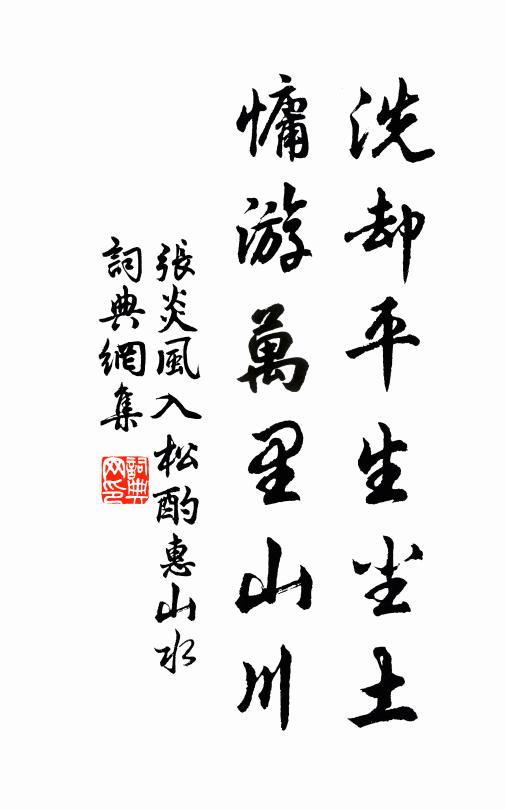 洗却平生尘土
慵游萬里山川
張炎風入松酌惠山水
詞典網集
詞典网印